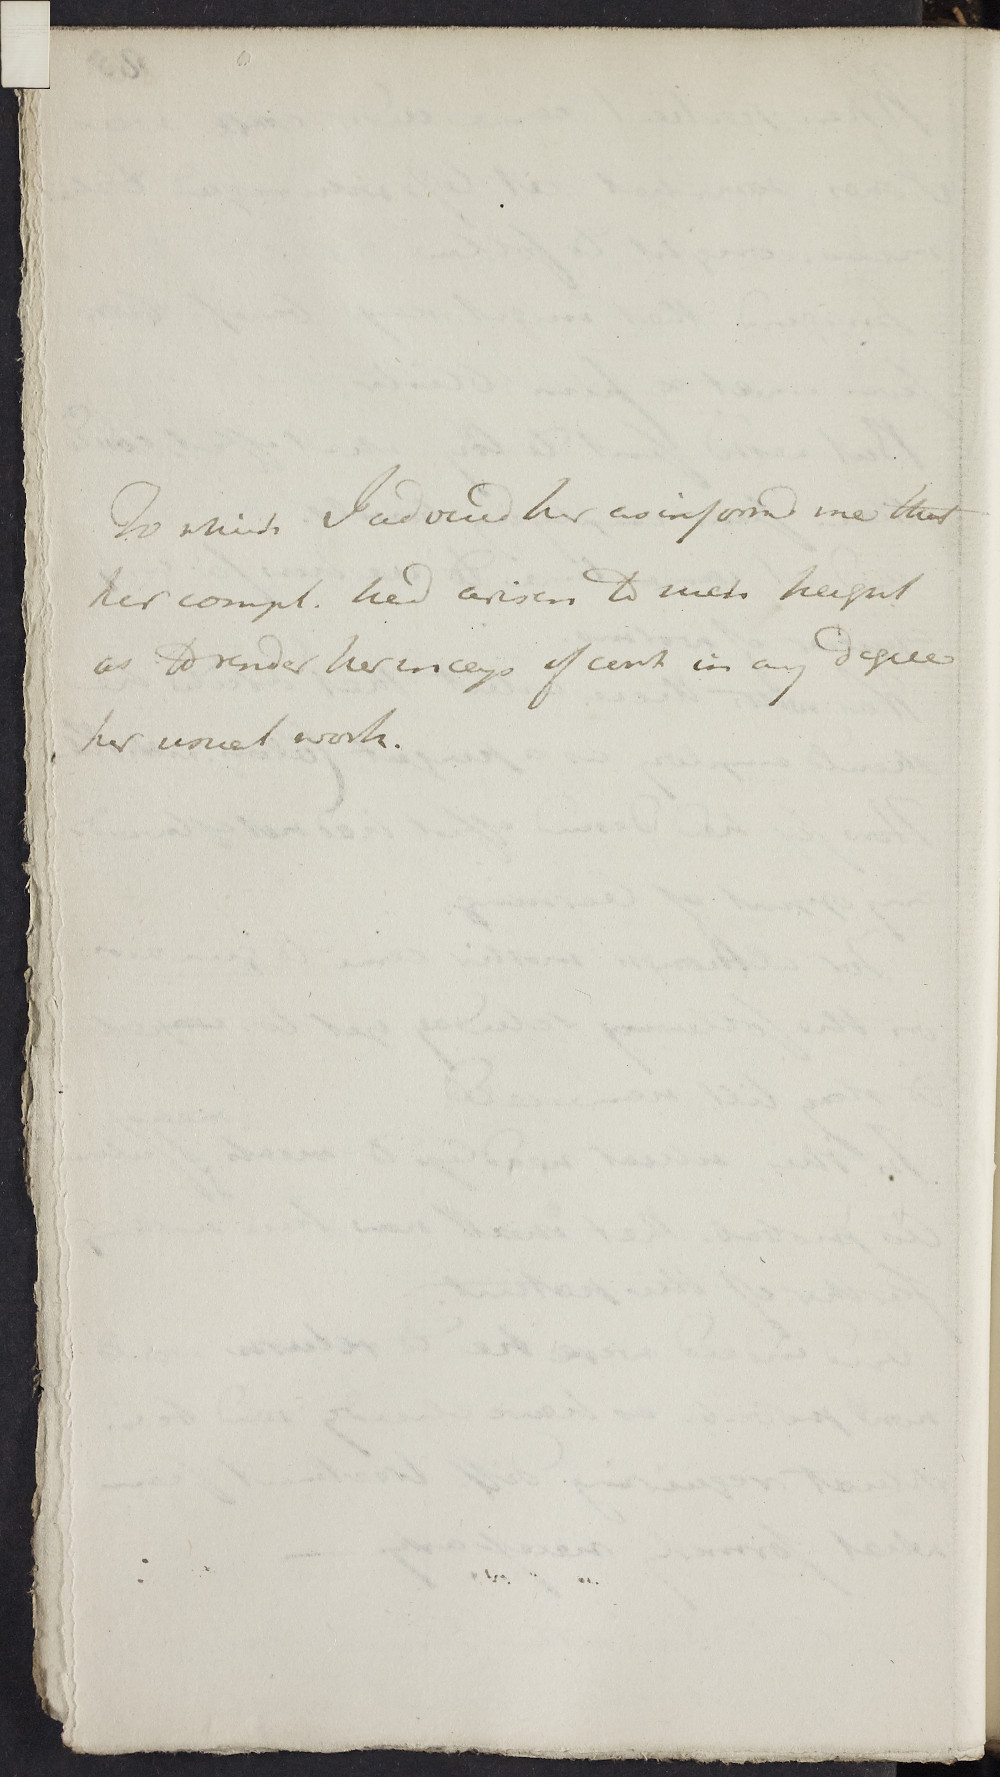 To which I advised her as inform'd me that
her compl. had arisen to such height
as to render her incap. of cont. in any degree
her usual work.